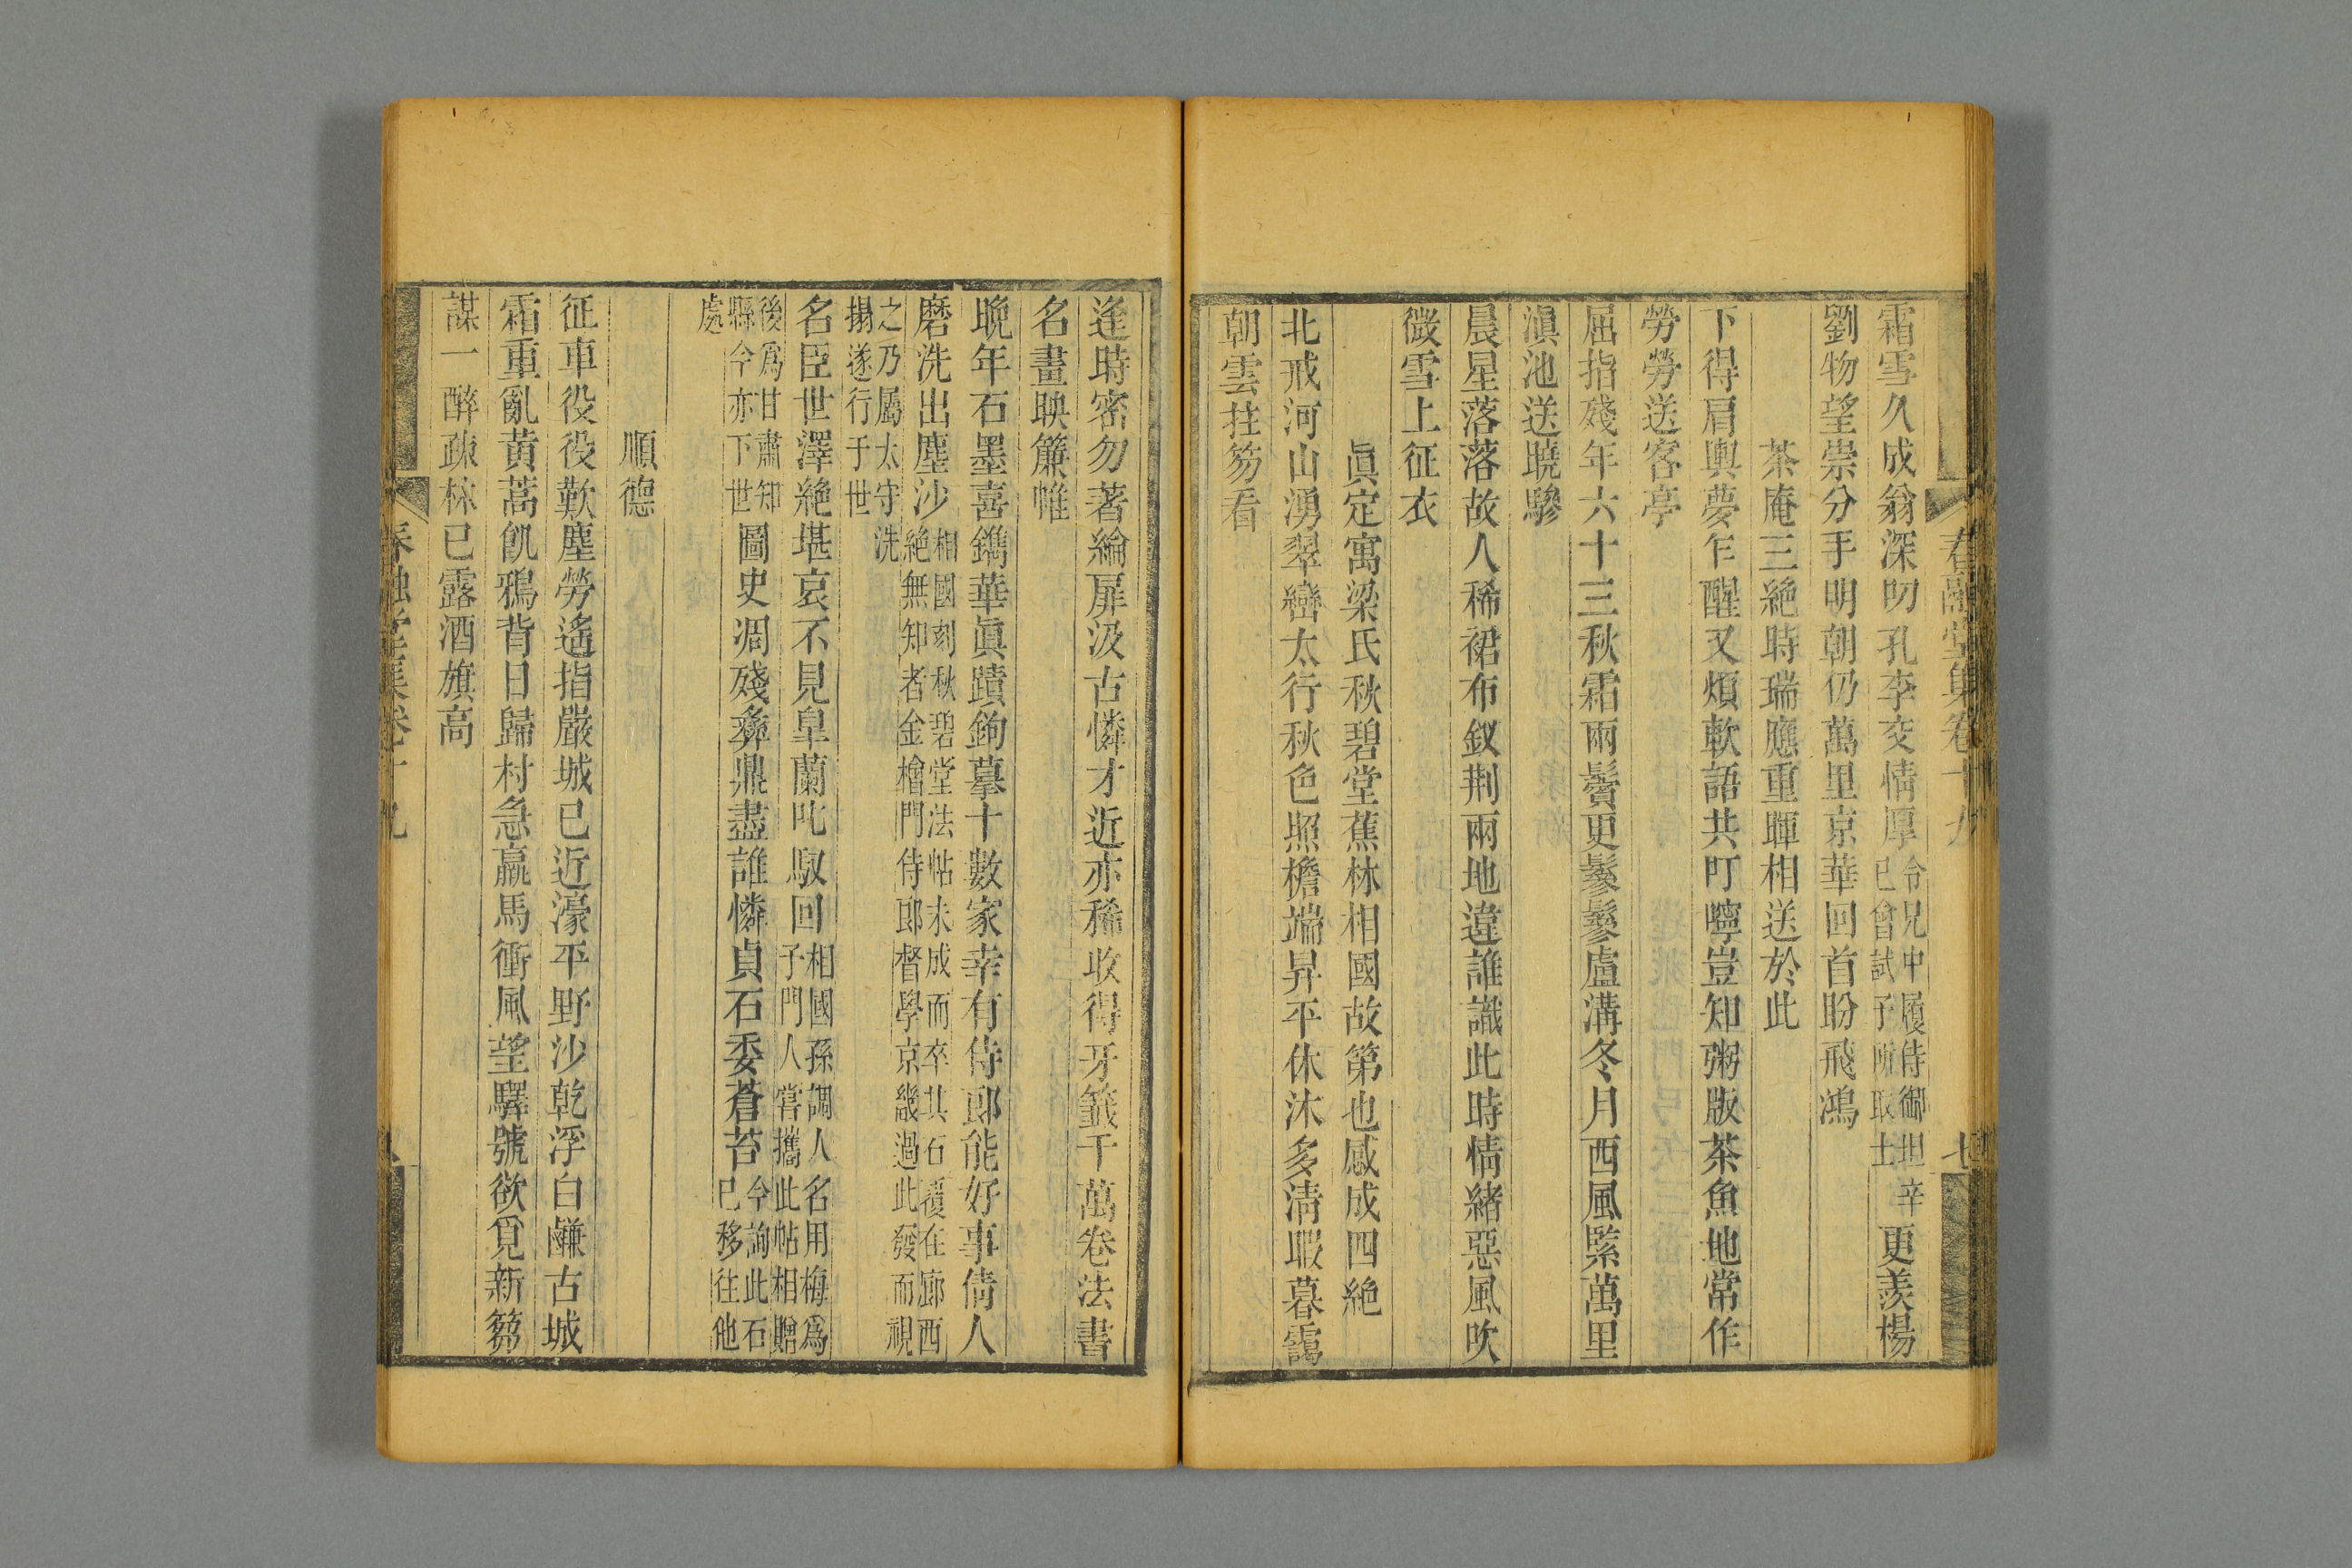 春融堂集卷十九
七
霜雪久成翁深叨孔李交情厚令兄中履侍御坦辛已會試予所取士更羨楊
劉物望崇分手明朝仍萬里京華回首盼飛鴻
茶庵三絶時瑞應重暉相送於此
下得肩輿夢乍醒又煩軟語共叮嚀豈知粥版茶魚地常作
勞勞送客亭
屈指殘年六十三秋霜兩鬢更鬖鬖盧溝冬月西風緊萬里
滇池送曉驂
晨星落落故人稀裙布釵荆兩地違誰識此時情緒惡風吹
微雪上征衣
眞定寓梁氏秋碧堂蕉林相國故第也感成四絶
北戒河山湧翠巒太行秋色照檐端昇平休沐多淸暇暮靄
朝雲拄笏看
逢時密勿著綸扉汲古憐才近亦稀收得牙籤千萬卷法書
名畫映簾帷
晚年石墨喜鐫華眞蹟鉤摹十數家幸有侍郎能好事倩人
磨洗出塵沙相國刻秋碧堂法帖未成而卒其石覆在廊西絶無知者金檜門侍郎督學京畿過此發而視
之乃屬太守洗搨遂行于世
名臣世澤絶堪哀不見皐蘭叱馭回相國孫調人名用梅爲予門人嘗攜此帖相贈
後爲甘肅知縣今亦下世圖史凋殘彝鼎盡誰憐貞石委蒼苔今詢此石已移往他
處
順德
征車役役歎塵勞遙指嚴城已近濠平野沙乾浮白鹻古城
霜重亂黄蒿飢鴉背日歸村急羸馬衝風望驛號欲覓新篘
謀一醉疎林已露酒旗高
春融堂集卷十九